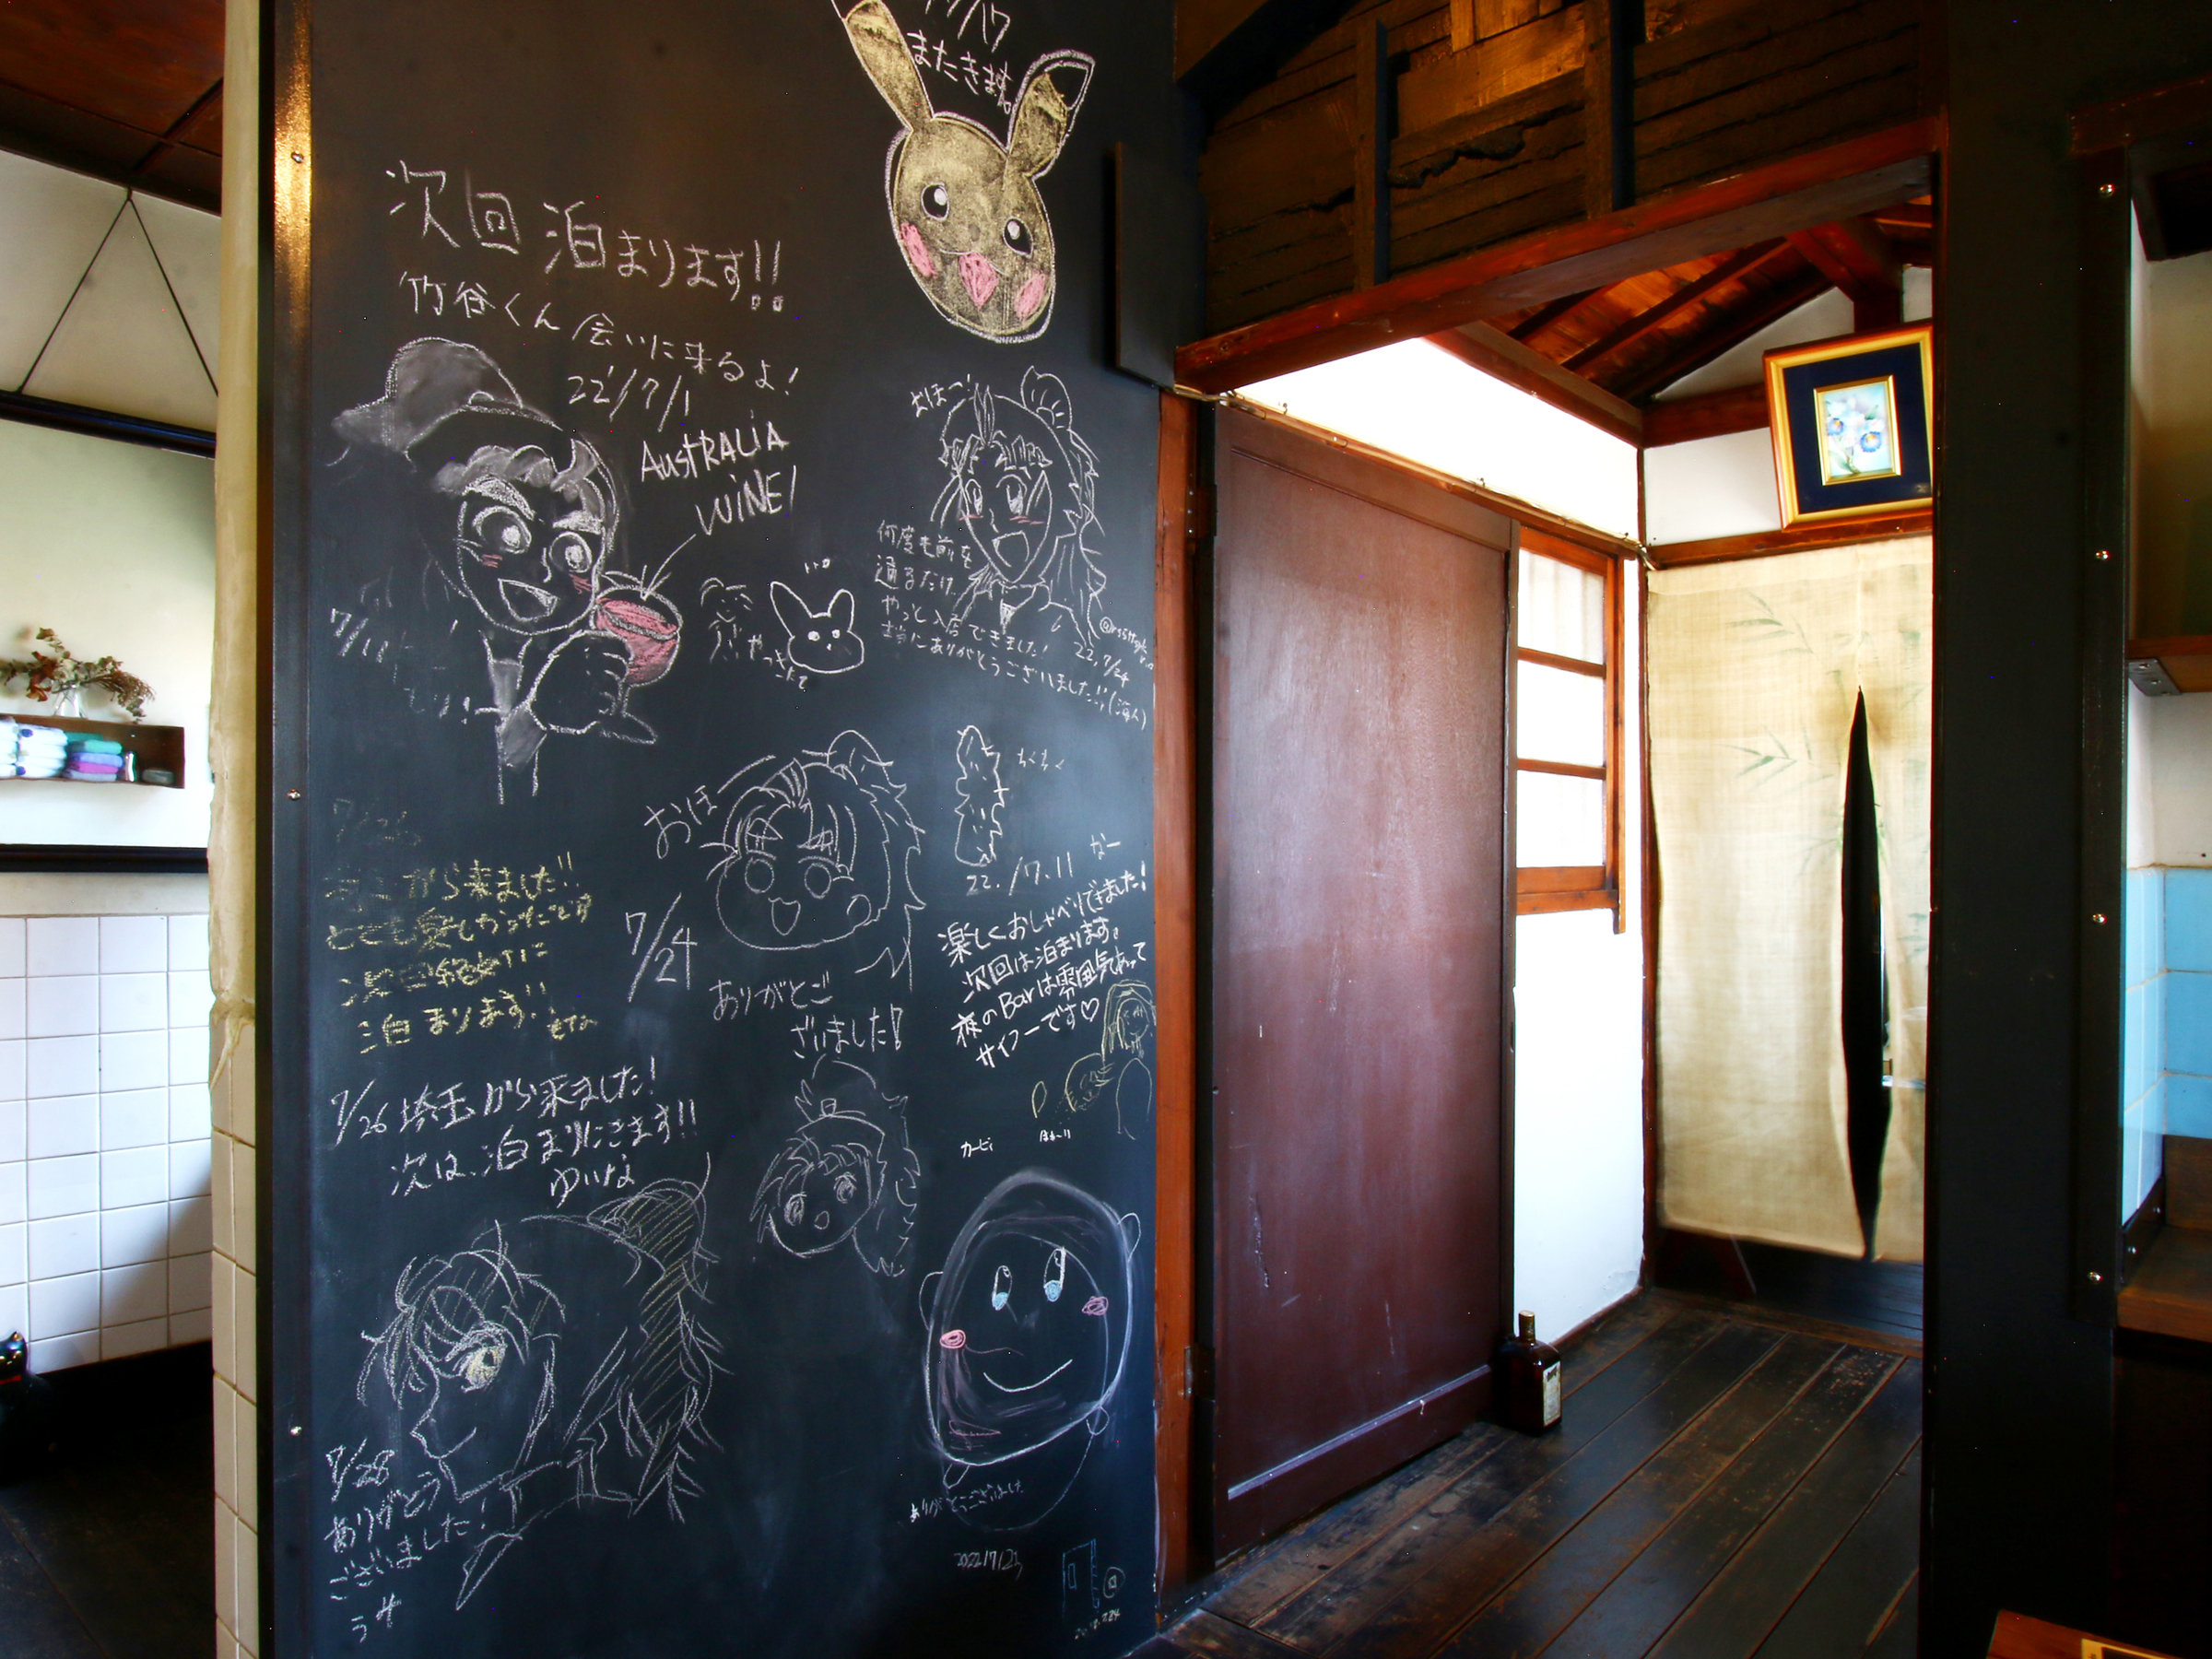 またきます。
次回 泊まります!!
竹谷くん 会いに来るよ!
22'/7/1
AUSTRALiA
WiNE!
おほー!
何度も前を
通るだけ
やっと入店できました!
ありがとうございました!!
22,7/24
やっときた
7/11
ちくちく
22./7.11 かー
楽しくおしゃべりできました!
次回は泊まります。
夜のBarは雰囲気あって
サイコーです♡
おほー
7/24
ありがとご
ざいました!
から来ました!!
とても楽しかったです
泊まります!!
7/26 埼玉から来ました!
次は、泊まりにきます!!
ゆいな
カービィ
7/28
ありがとう
ございました!
うサ
ありがとうございました
2022/7/23